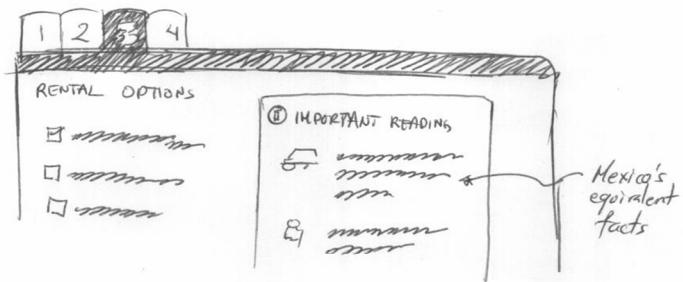 1 2 3 4
RENTAL OPTIONS
IMPORTANT READING
Mexico's
equivalent
facts